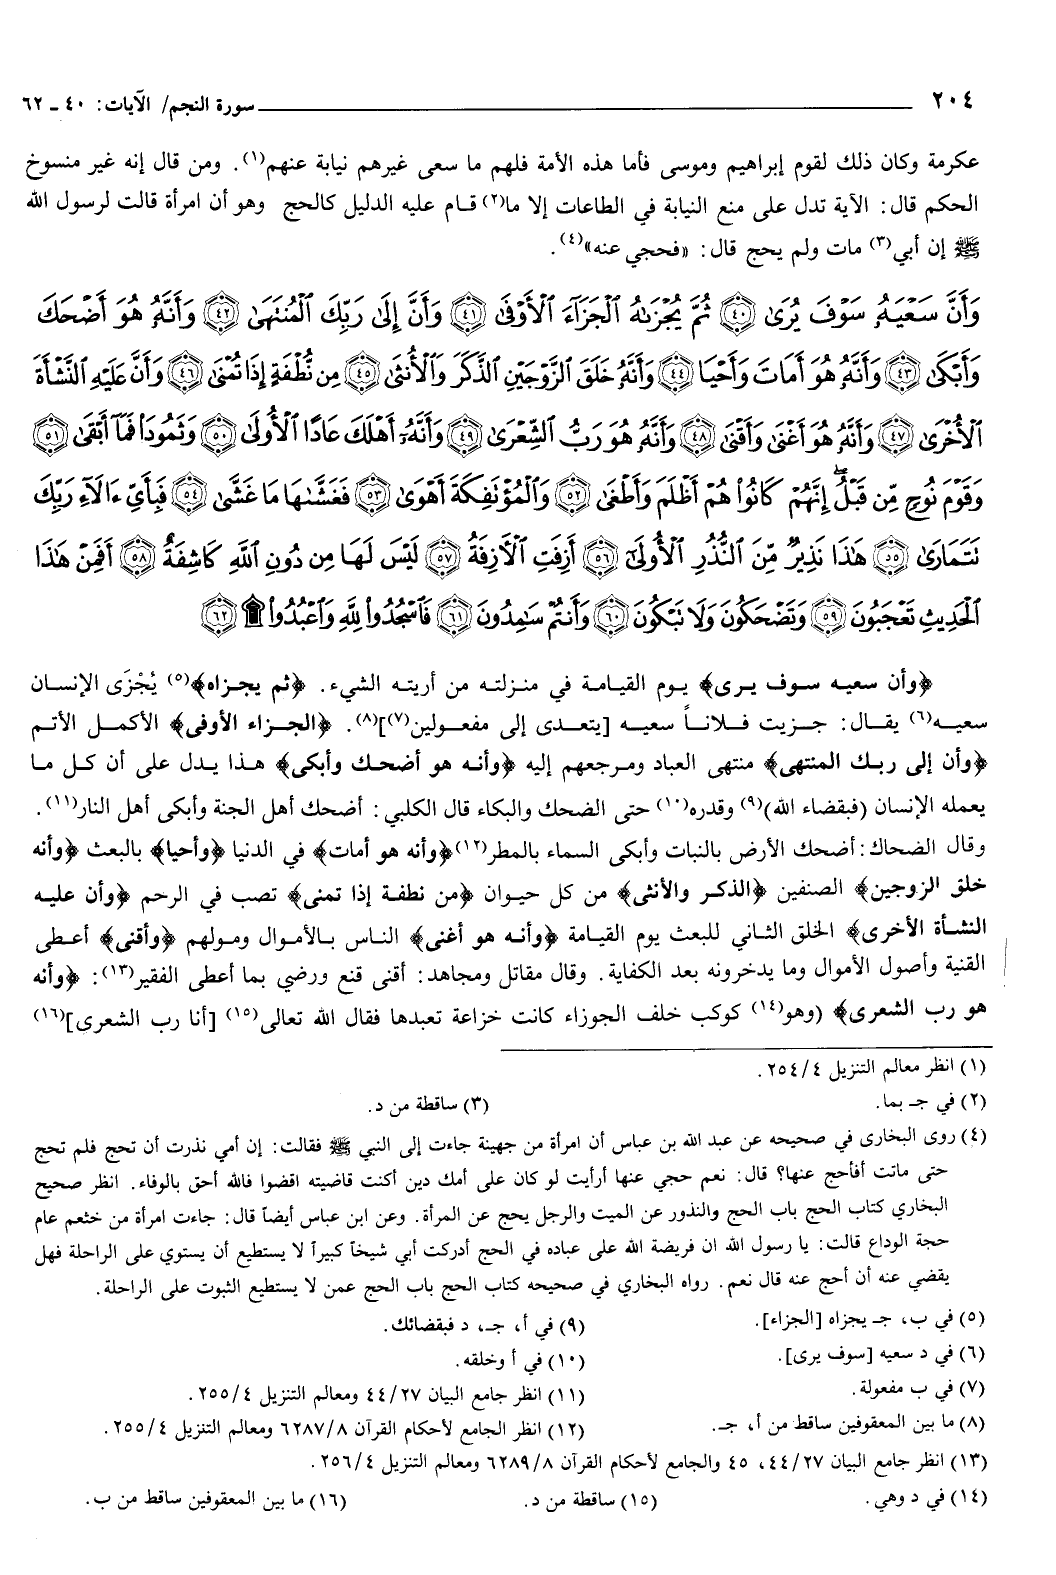 ٢٠٤ سورة النجم/ الآيات: ٤٠ ـ ٦٢
عكرمة وكان ذلك لقوم إبراهيم وموسى فأما هذه الأمة فلهم ما سعى غيرهم نيابة عنهم(١). ومن قال إنه غير منسوخ
الحكم قال: الآية تدل على منع النيابة في الطاعات إلا ما(٢) قام عليه الدليل كالحج وهو أن امرأة قالت لرسول الله
ﷺ إن أبي(٣) مات ولم يحج قال: «فحجي عنه»(٤).
وَأَنَّ سَعْيَهُۥ سَوْفَ يُرَىٰ ﴿٤٠﴾ ثُمَّ يُجْزَىٰهُ ٱلْجَزَآءَ ٱلْأَوْفَىٰ ﴿٤١﴾ وَأَنَّ إِلَىٰ رَبِّكَ ٱلْمُنتَهَىٰ ﴿٤٢﴾ وَأَنَّهُۥ هُوَ أَضْحَكَ
وَأَبْكَىٰ ﴿٤٣﴾ وَأَنَّهُۥ هُوَ أَمَاتَ وَأَحْيَا ﴿٤٤﴾ وَأَنَّهُۥ خَلَقَ ٱلزَّوْجَيْنِ ٱلذَّكَرَ وَٱلْأُنثَىٰ ﴿٤٥﴾ مِن نُّطْفَةٍ إِذَا تُمْنَىٰ ﴿٤٦﴾ وَأَنَّ عَلَيْهِ ٱلنَّشْأَةَ
ٱلْأُخْرَىٰ ﴿٤٧﴾ وَأَنَّهُۥ هُوَ أَغْنَىٰ وَأَقْنَىٰ ﴿٤٨﴾ وَأَنَّهُۥ هُوَ رَبُّ ٱلشِّعْرَىٰ ﴿٤٩﴾ وَأَنَّهُۥٓ أَهْلَكَ عَادًا ٱلْأُولَىٰ ﴿٥٠﴾ وَثَمُودَا۟ فَمَآ أَبْقَىٰ ﴿٥١﴾
وَقَوْمَ نُوحٍ مِّن قَبْلُ ۖ إِنَّهُمْ كَانُوا۟ هُمْ أَظْلَمَ وَأَطْغَىٰ ﴿٥٢﴾ وَٱلْمُؤْتَفِكَةَ أَهْوَىٰ ﴿٥٣﴾ فَغَشَّىٰهَا مَا غَشَّىٰ ﴿٥٤﴾ فَبِأَىِّ ءَالَآءِ رَبِّكَ
تَتَمَارَىٰ ﴿٥٥﴾ هَـٰذَا نَذِيرٌ مِّنَ ٱلنُّذُرِ ٱلْأُولَىٰٓ ﴿٥٦﴾ أَزِفَتِ ٱلْـَٔازِفَةُ ﴿٥٧﴾ لَيْسَ لَهَا مِن دُونِ ٱللَّهِ كَاشِفَةٌ ﴿٥٨﴾ أَفَمِنْ هَـٰذَا
ٱلْحَدِيثِ تَعْجَبُونَ ﴿٥٩﴾ وَتَضْحَكُونَ وَلَا تَبْكُونَ ﴿٦٠﴾ وَأَنتُمْ سَـٰمِدُونَ ﴿٦١﴾ فَٱسْجُدُوا۟ لِلَّهِ وَٱعْبُدُوا۟ ۩ ﴿٦٢﴾
﴿وأن سعيه سوف يرى﴾ يوم القيامة في منزلته من أريته الشيء. ﴿ثم يجزاه﴾(٥) يُجْزَى الإنسان
سعيه(٦) يقال: جزيت فلاناً سعيه [يتعدى إلى مفعولين(٧)](٨). ﴿الجزاء الأوفى﴾ الأكمل الأتم
﴿وأن إلى ربك المنتهى﴾ منتهى العباد ومرجعهم إليه ﴿وأنه هو أضحك وأبكى﴾ هذا يدل على أن كل ما
يعمله الإنسان (فبقضاء الله)(٩) وقدره(١٠) حتى الضحك والبكاء قال الكلبي: أضحك أهل الجنة وأبكى أهل النار(١١).
وقال الضحاك: أضحك الأرض بالنبات وأبكى السماء بالمطر(١٢) ﴿وأنه هو أمات﴾ في الدنيا ﴿وأحيا﴾ بالبعث ﴿وأنه
خلق الزوجين﴾ الصنفين ﴿الذكر والأنثى﴾ من كل حيوان ﴿من نطفة إذا تمنى﴾ تصب في الرحم ﴿وأن عليه
النشأة الأخرى﴾ الخلق الثاني للبعث يوم القيامة ﴿وأنه هو أغنى﴾ الناس بالأموال ومولهم ﴿وأقنى﴾ أعطى
القنية وأصول الأموال وما يدخرونه بعد الكفاية. وقال مقاتل ومجاهد: أقنى قنع ورضي بما أعطى الفقير(١٣): ﴿وأنه
هو رب الشعرى﴾ (وهو(١٤) كوكب خلف الجوزاء كانت خزاعة تعبدها فقال الله تعالى(١٥) [أنا رب الشعرى](١٦)
(١) انظر معالم التنزيل ٢٥٤/٤.
(٢) في جـ بما. (٣) ساقطة من د.
(٤) روى البخارى في صحيحه عن عبد الله بن عباس أن امرأة من جهينة جاءت إلى النبي ﷺ فقالت: إن أمي نذرت أن تحج فلم تحج
حتى ماتت أفأحج عنها؟ قال: نعم حجي عنها أرأيت لو كان على أمك دين أكنت قاضيته اقضوا فالله أحق بالوفاء. انظر صحيح
البخاري كتاب الحج باب الحج والنذور عن الميت والرجل يحج عن المرأة. وعن ابن عباس أيضاً قال: جاءت امرأة من خثعم عام
حجة الوداع قالت: يا رسول الله ان فريضة الله على عباده في الحج أدركت أبي شيخاً كبيراً لا يستطيع أن يستوي على الراحلة فهل
يقضي عنه أن أحج عنه قال نعم. رواه البخاري في صحيحه كتاب الحج باب الحج عمن لا يستطيع الثبوت على الراحلة.
(٥) في ب، جـ يجزاه [الجزاء]. (٩) في أ، جـ، د فبقضائك.
(٦) في د سعيه [سوف يرى]. (١٠) في أ وخلقه.
(٧) في ب مفعولة. (١١) انظر جامع البيان ٤٤/٢٧ ومعالم التنزيل ٢٥٥/٤.
(٨) ما بين المعقوفين ساقط من أ، جـ. (١٢) انظر الجامع لأحكام القرآن ٦٢٨٧/٨ ومعالم التنزيل ٢٥٥/٤.
(١٣) انظر جامع البيان ٤٤/٢٧، ٤٥ والجامع لأحكام القرآن ٦٢٨٩/٨ ومعالم التنزيل ٢٥٦/٤.
(١٤) في د وهي. (١٥) ساقطة من د. (١٦) ما بين المعقوفين ساقط من ب.